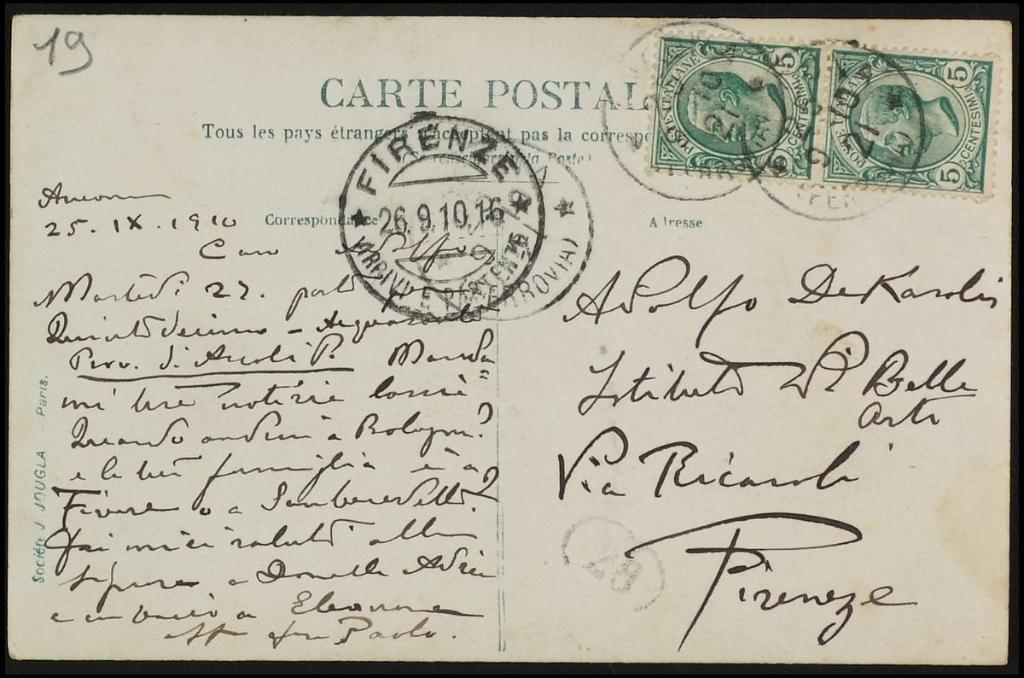 19
CARTE POSTALE
Tous les pays étrangers n'acceptent pas la corresp
Correspondance
Adresse
FIRENZE
26.9.10.16
(ARRIVI E PARTENZE)
FERROVIA)
POSTE ITALIANE
CENTESIMI 5
POSTE
5 CENTESIMI 5
25.IX.1910
Caro Adolfo
Martedì 27. parto
Quintodecimo - Acquasanta
Prov. di Ascoli P. Manda
mi tue notizie costì
Quando andrai a Bologna?
e la tua famiglia è a
Firenze o a Sanbenedetto?
Fai miei saluti alla
signora a Donella Adria
e un bacio a Eleonora
aff Paolo.
Adolfo DeKarolis
Istituto di Belle
Arti
Via Ricasoli
Firenze
28
Société J JOUGLA - Paris.